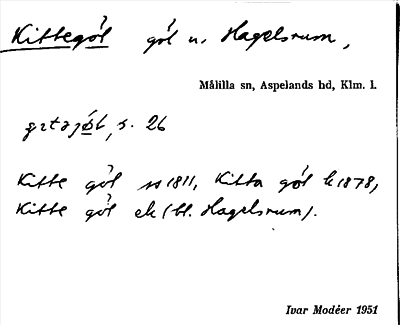 Kittegöl göl n. Hagelsrum,
Målilla sn, Aspelands hd, Klm. l.
s. 26
Kitte göl 1811, Kitta göl k 1878,
Kitte göl ek (bl. Hagelsrum).
Ivar Modéer 1951